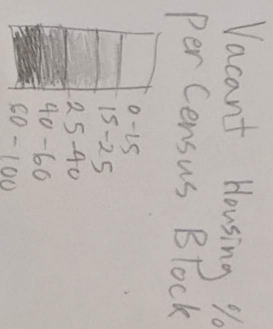 Vacant Housing %
Per Census Block
0-15
15-25
25-40
40-60
60-100